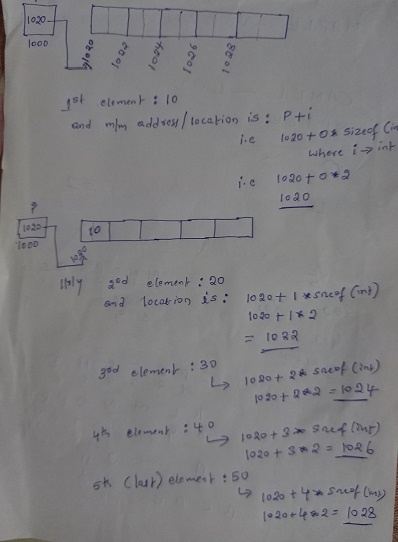 1020
1000
1020
1022
1024
1026
1028
1st element : 10
and m/m address/location is : P+i
i.e 1020 + 0 * sizeof (in
where i → int
i.e 1020 + 0 * 2
1020
P
1020
1000
1020
10
lll ly 2nd element : 20
and location is : 1020 + 1 * sizeof (int)
1020 + 1 * 2
= 1022
3rd element : 30
↳ 1020 + 2 * sizeof (int)
1020 + 2 * 2 = 1024
4th element : 40
↳ 1020 + 3 * sizeof (int)
1020 + 3 * 2 = 1026
5th (last) element : 50
↳ 1020 + 4 * sizeof (int)
1020 + 4 * 2 = 1028